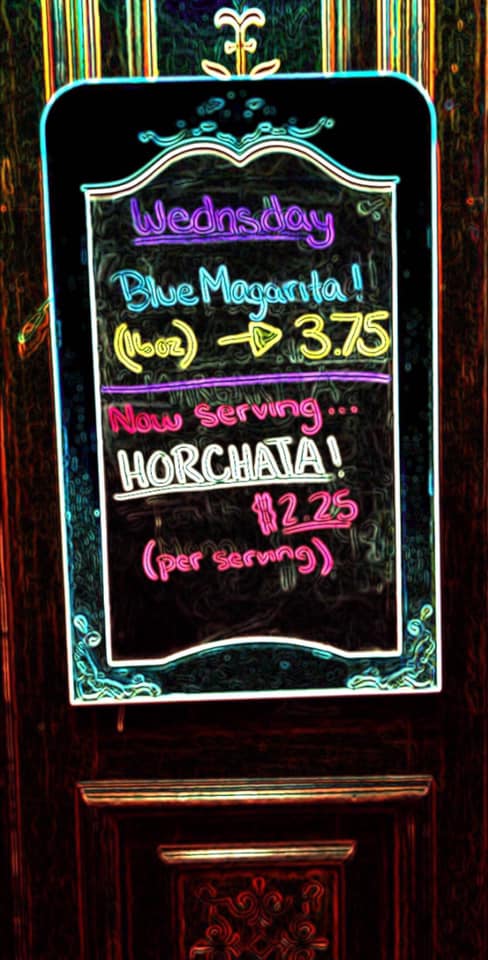 Wednsday
Blue Magarita!
(16oz) → 3.75
Now serving...
HORCHATA!
$2.25
(per serving)